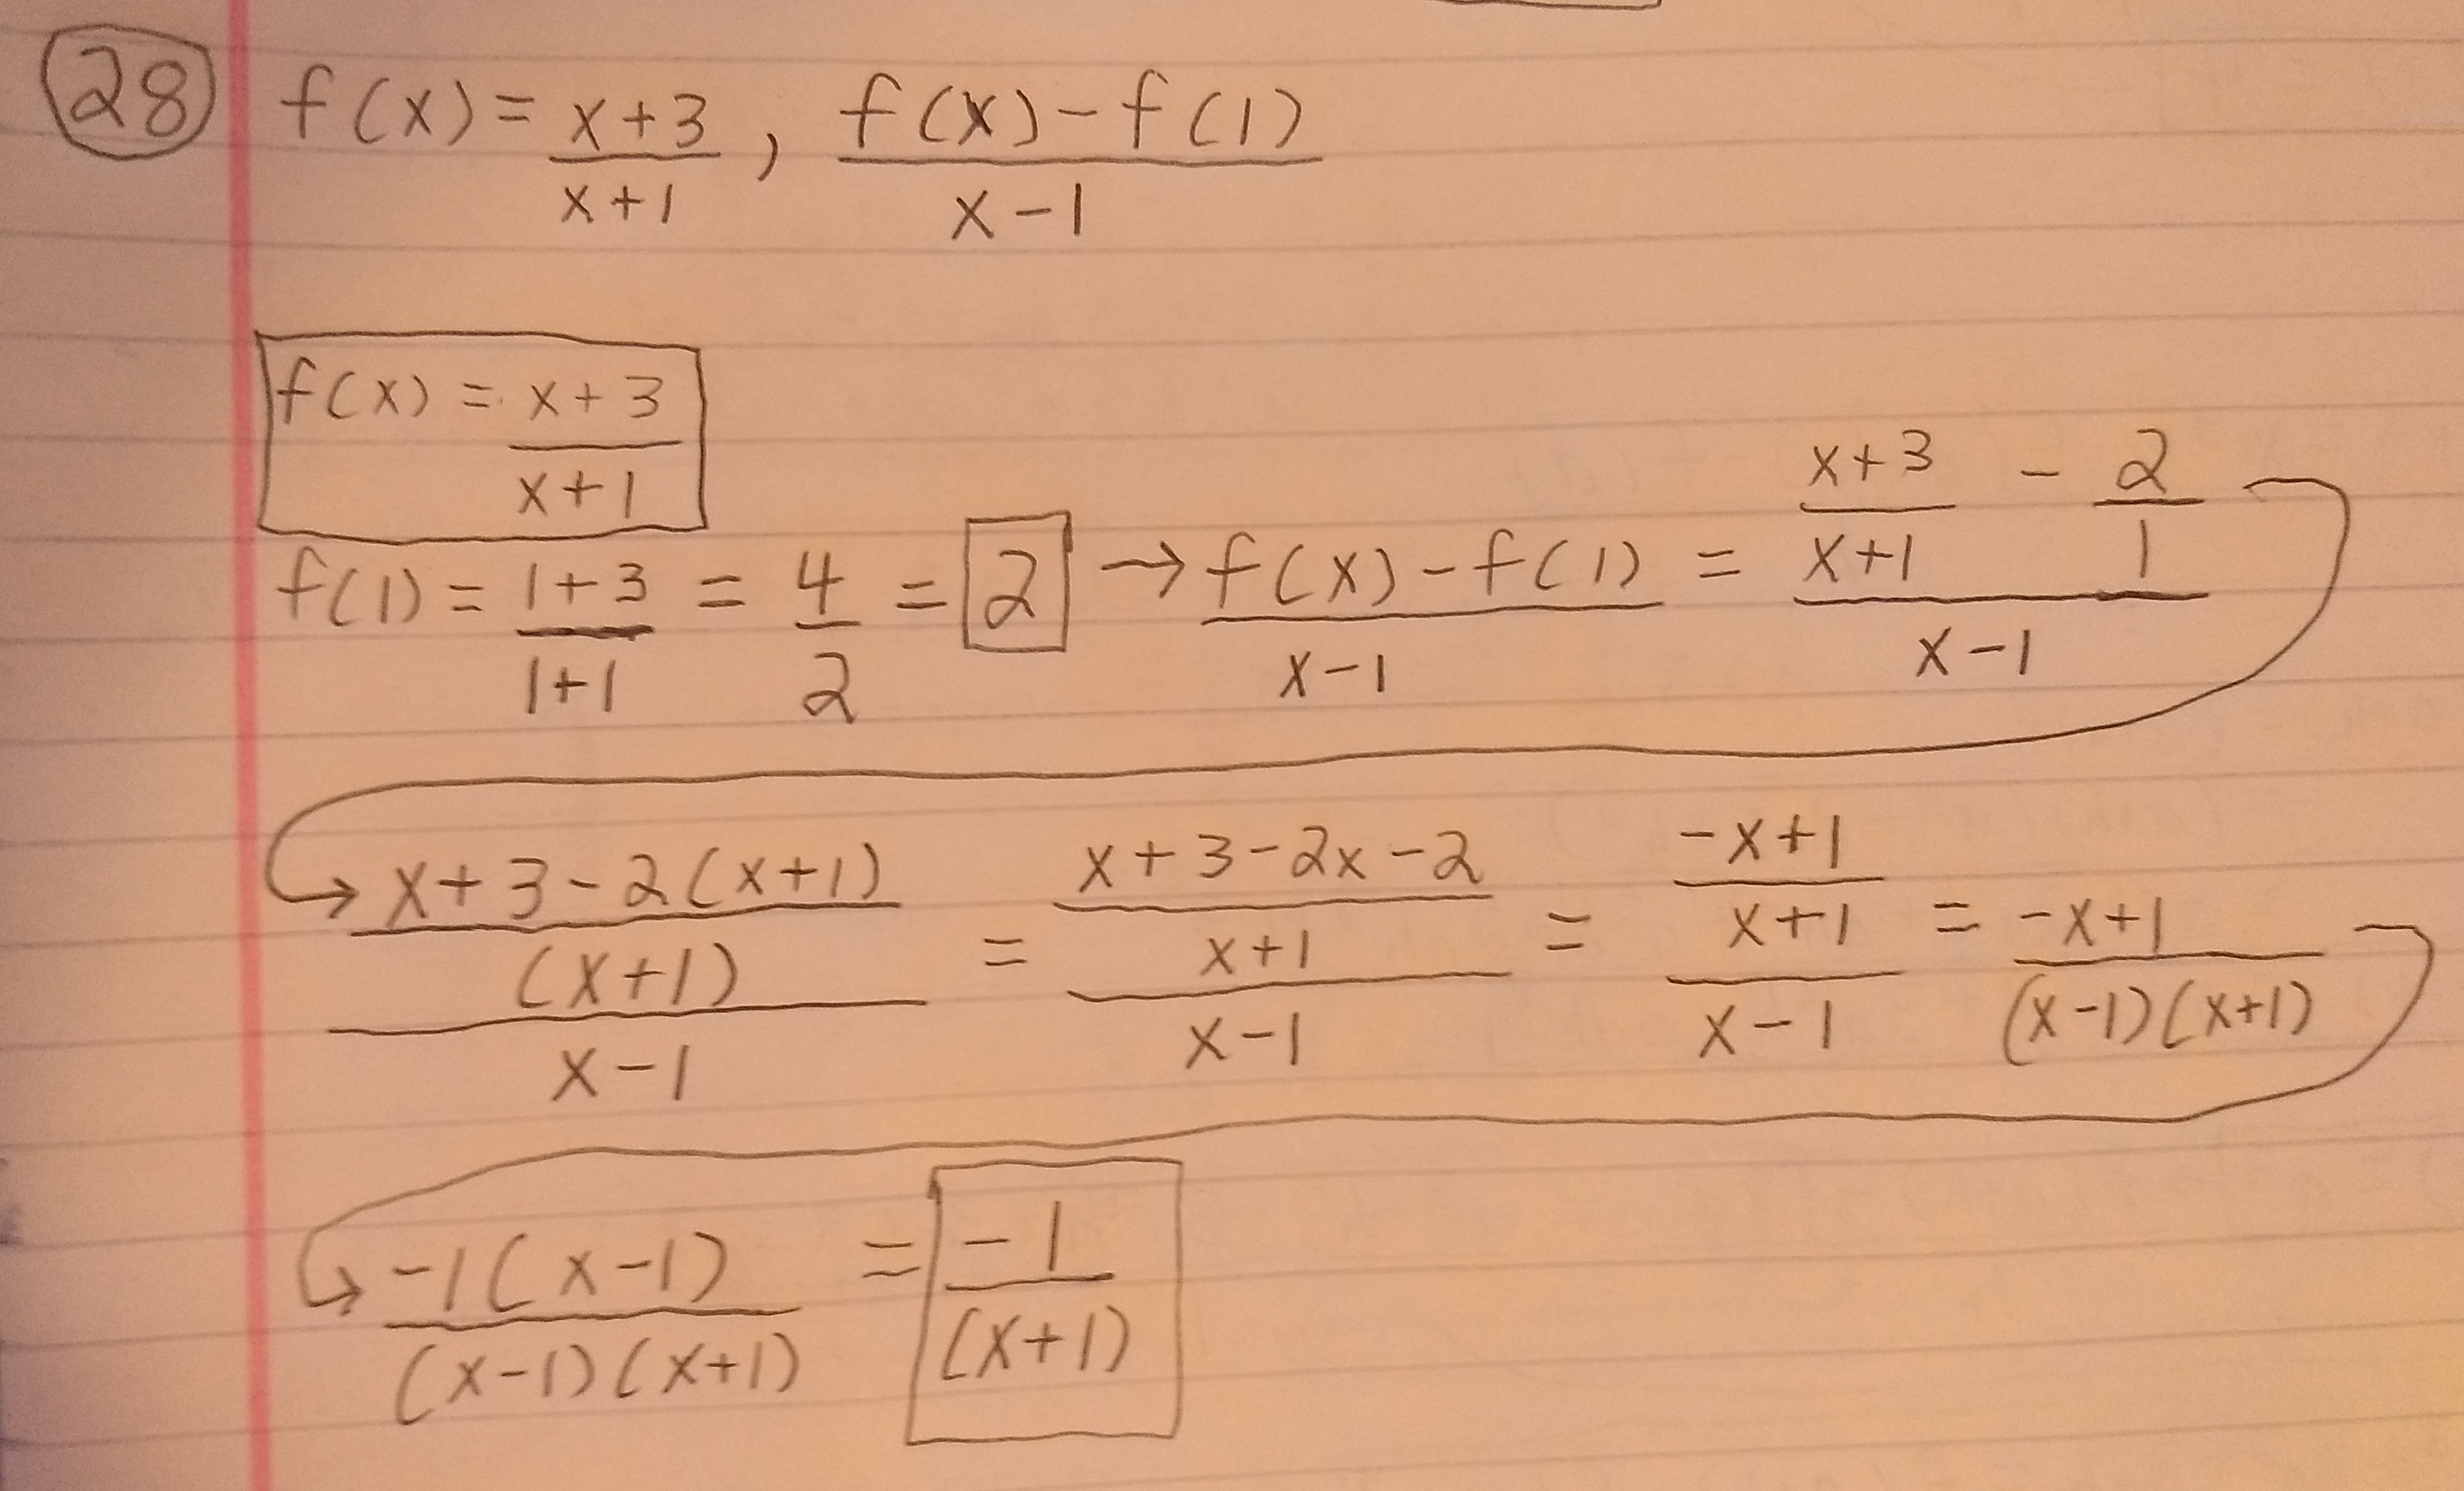 28 f(x) = (x+3)/(x+1), (f(x)-f(1))/(x-1)
f(x) = (x+3)/(x+1)
f(1) = (1+3)/(1+1) = 4/2 = 2 → (f(x)-f(1))/(x-1) = ((x+3)/(x+1) - 2/1)/(x-1)
→ ((x+3-2(x+1))/(x+1))/(x-1) = ((x+3-2x-2)/(x+1))/(x-1) = ((-x+1)/(x+1))/(x-1) = (-x+1)/((x-1)(x+1))
→ (-1(x-1))/((x-1)(x+1)) = -1/(x+1)